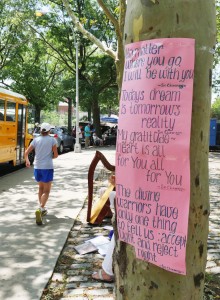 No matter
where you go
I will be with you
Today's dream
is tomorrow's
reality
My gratitude
heart is all
for you all
for you
The divine
warriors have
only one thing
to tell us: accept
right and reject
right!